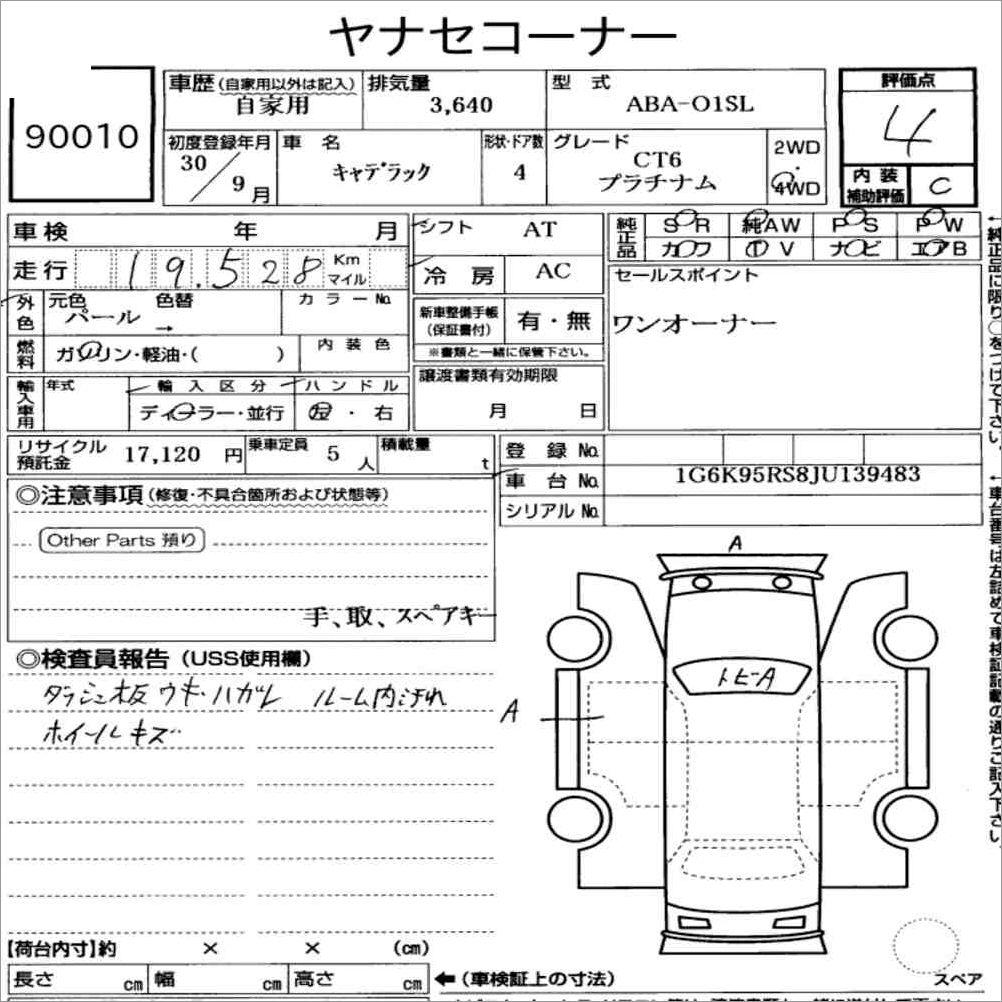 ヤナセコーナー
90010
車歴(自家用以外は記入) 自家用
排気量 3,640
型 式 ABA-O1SL
評価点 4
初度登録年月 30/9月
車 名 キャデラック
形状・ドア数 4
グレード CT6 プラチナム
2WD・4WD
内装補助評価 C
車検 年 月
シフト AT
純正品 SR 純AW PS PW
カワ TV ナビ エアB
走行 19.528 Km マイル
冷房 AC
セールスポイント
ワンオーナー
外色 元色 パール 色替 → カラーNo.
新車整備手帳(保証書付) 有・無
※書類と一緒に保管下さい。
燃料 ガソリン・軽油・( ) 内装色
譲渡書類有効期限
月 日
輸入車用 年式 輸入区分 ハンドル
ディーラー・並行 左・右
リサイクル預託金 17,120 円
乗車定員 5 人
積載量 t
登録 No.
車台 No. 1G6K95RS8JU139483
シリアル No.
←純正品に限り○をつけて下さい。
←車台番号は左詰めで車検証記載の通りご記入下さい。
◎注意事項(修復・不具合箇所および状態等)
Other Parts 預り
手、取、スペアキー
◎検査員報告(USS使用欄)
ダッシュ板ウキ・ハガレ ルーム内汚れ
ホイールキズ
A
トビ-A
A
【荷台内寸】約 × × (cm)
長さ cm 幅 cm 高さ cm ←(車検証上の寸法)
スペア